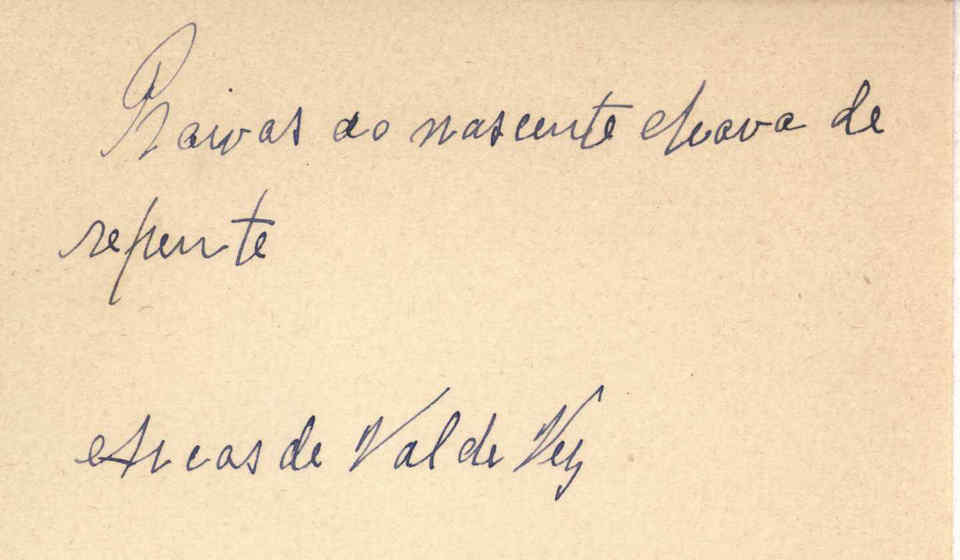 Raivas ao nascente chuva de
repente
Arcos de Val de Vez